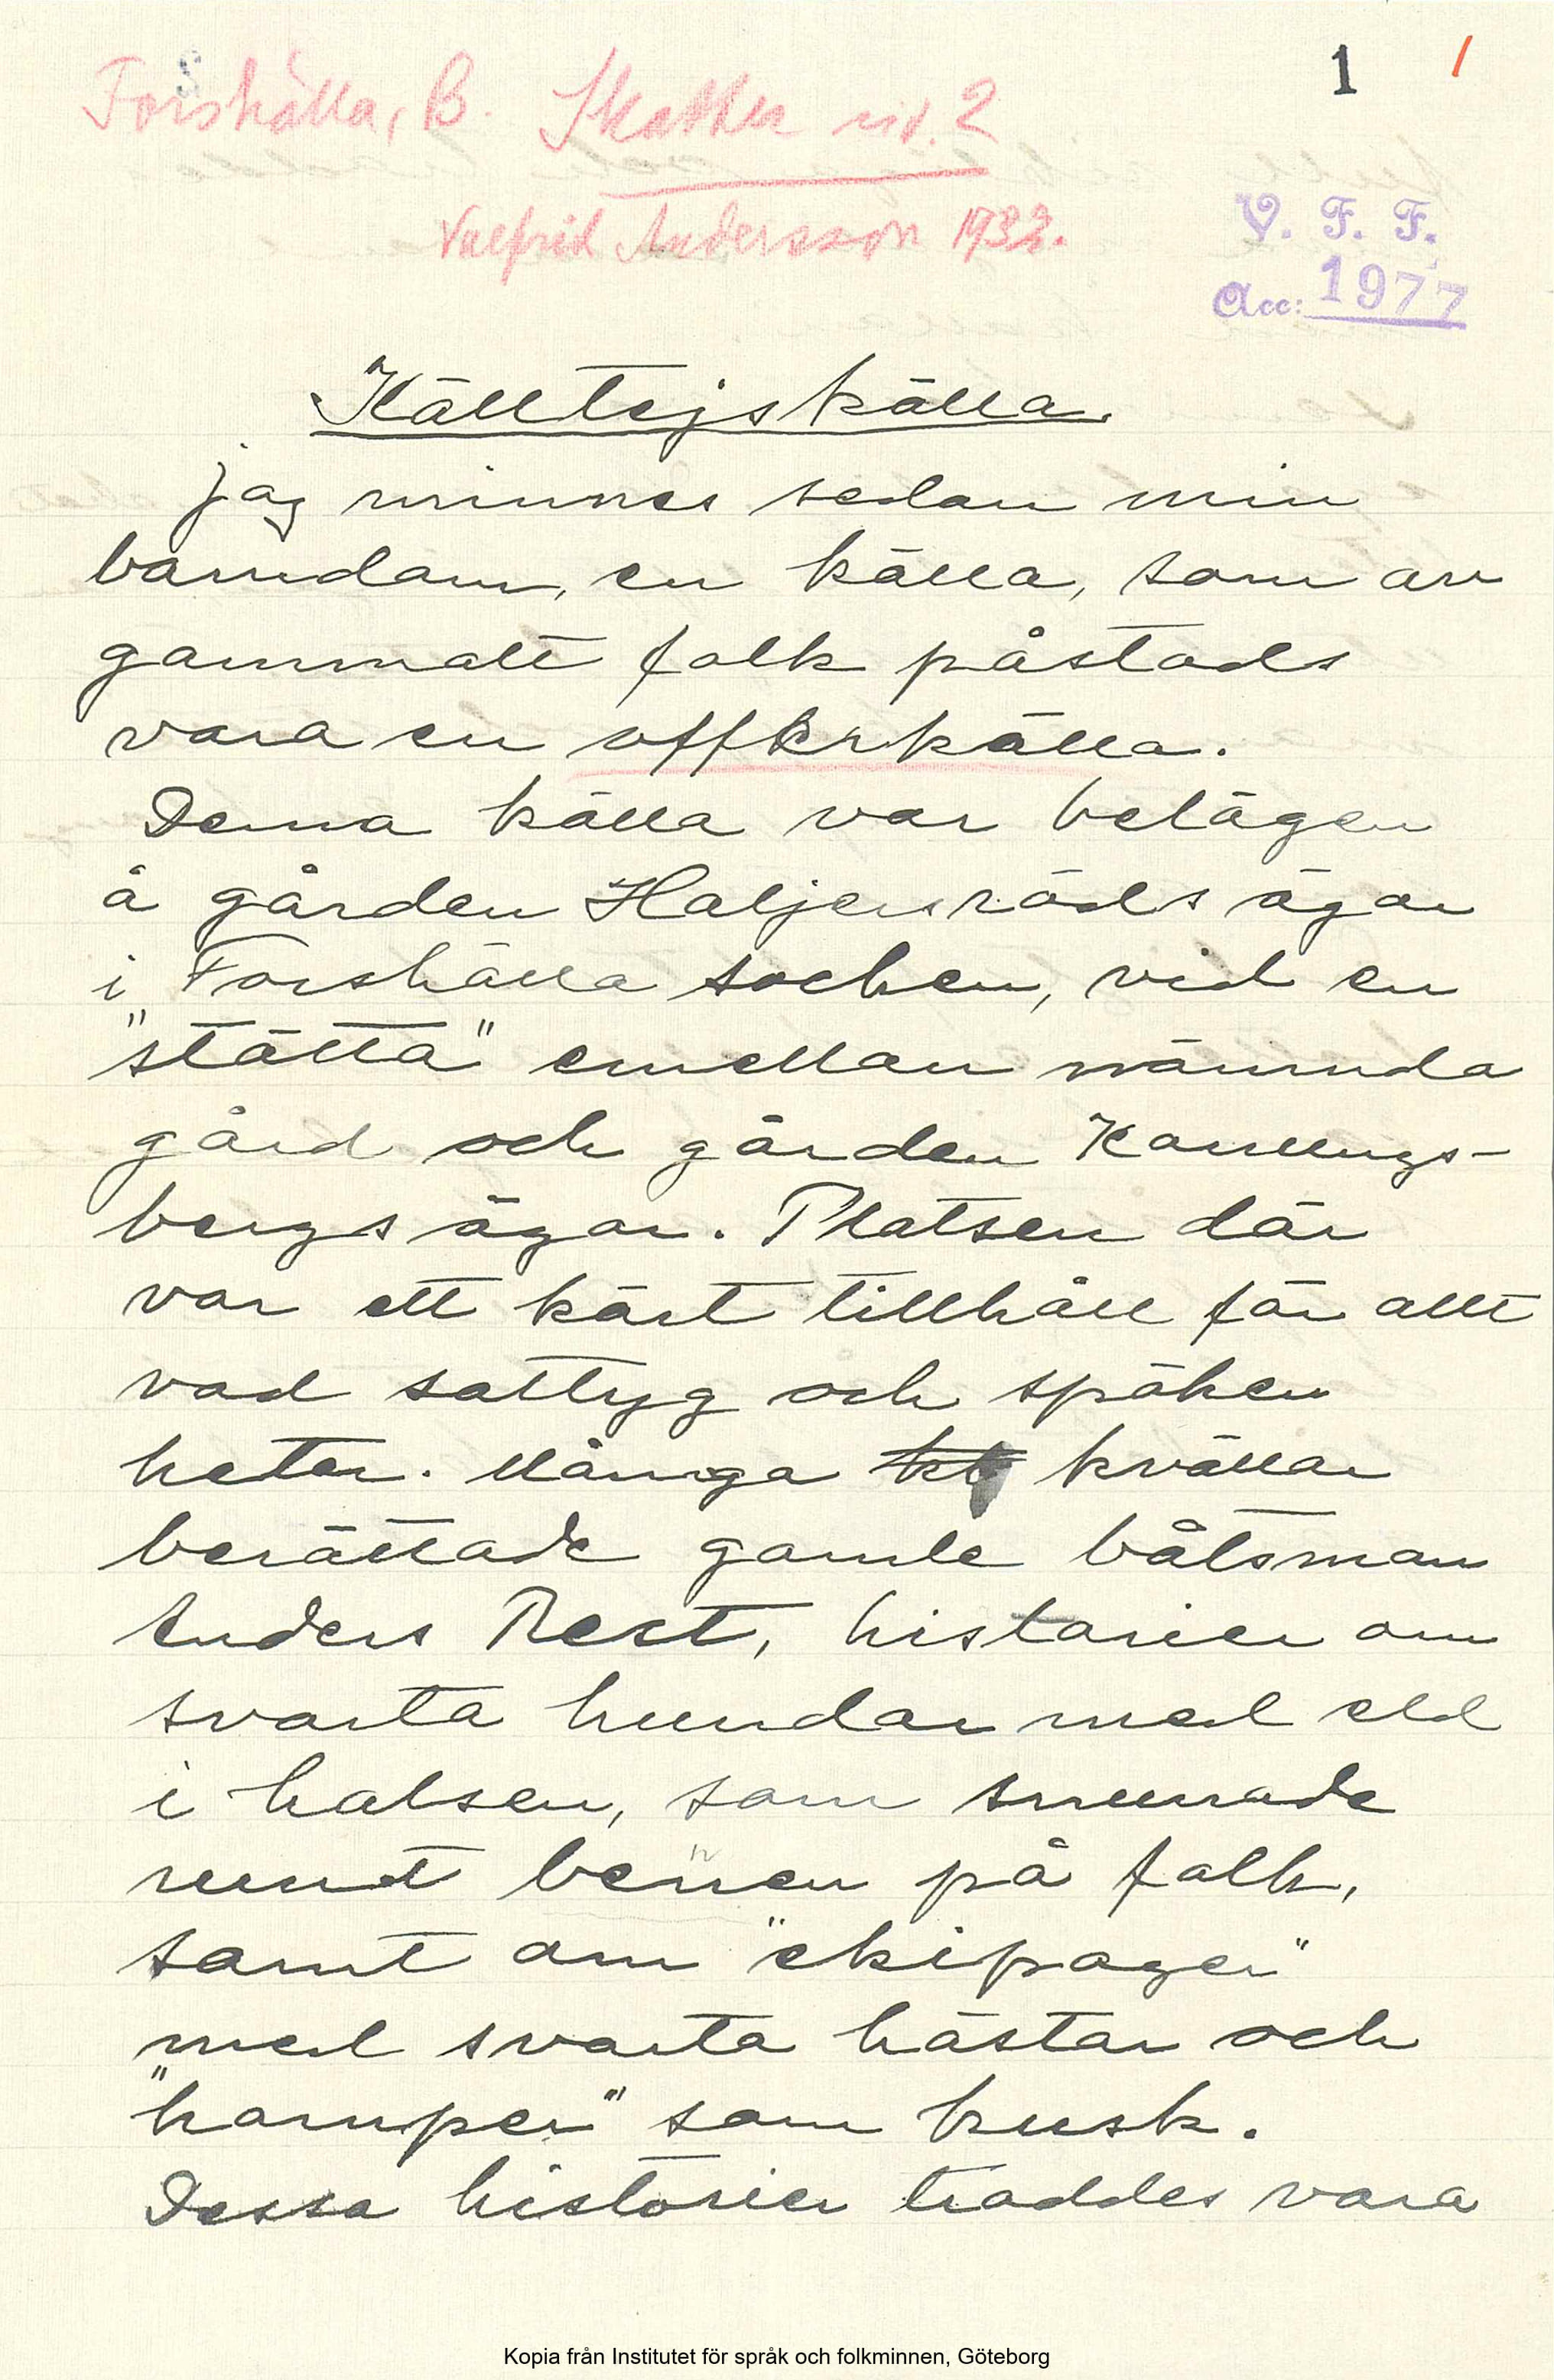 1 /
Forshälla, B. Skatter sid. 2
Valfrid Andersson 1932.
V. F. F.
Acc: 1977
Källtejskälla.
jag minnes sedan min
barndom, en källa, som av
gammalt folk påstods
vara en offerkälla.
Denna källa var belägen
å gården Haljersröds ägor
i Forshälla socken, vid en
"stätta" emellan nämnda
gård och gården
bergs ägor. Platsen där
var ett kärt tillhåll för allt
vad sattyg och spöken
heter. Många kvällar
berättade gamle båtsman
Anders Rest, historier om
svarta hundar med eld
i halsen, som snurrade
runt benen på folk,
samt om "ekipager"
med svarta hästar och
"hornper" som kusk.
Dessa historier troddes vara
Kopia från Institutet för språk och folkminnen, Göteborg